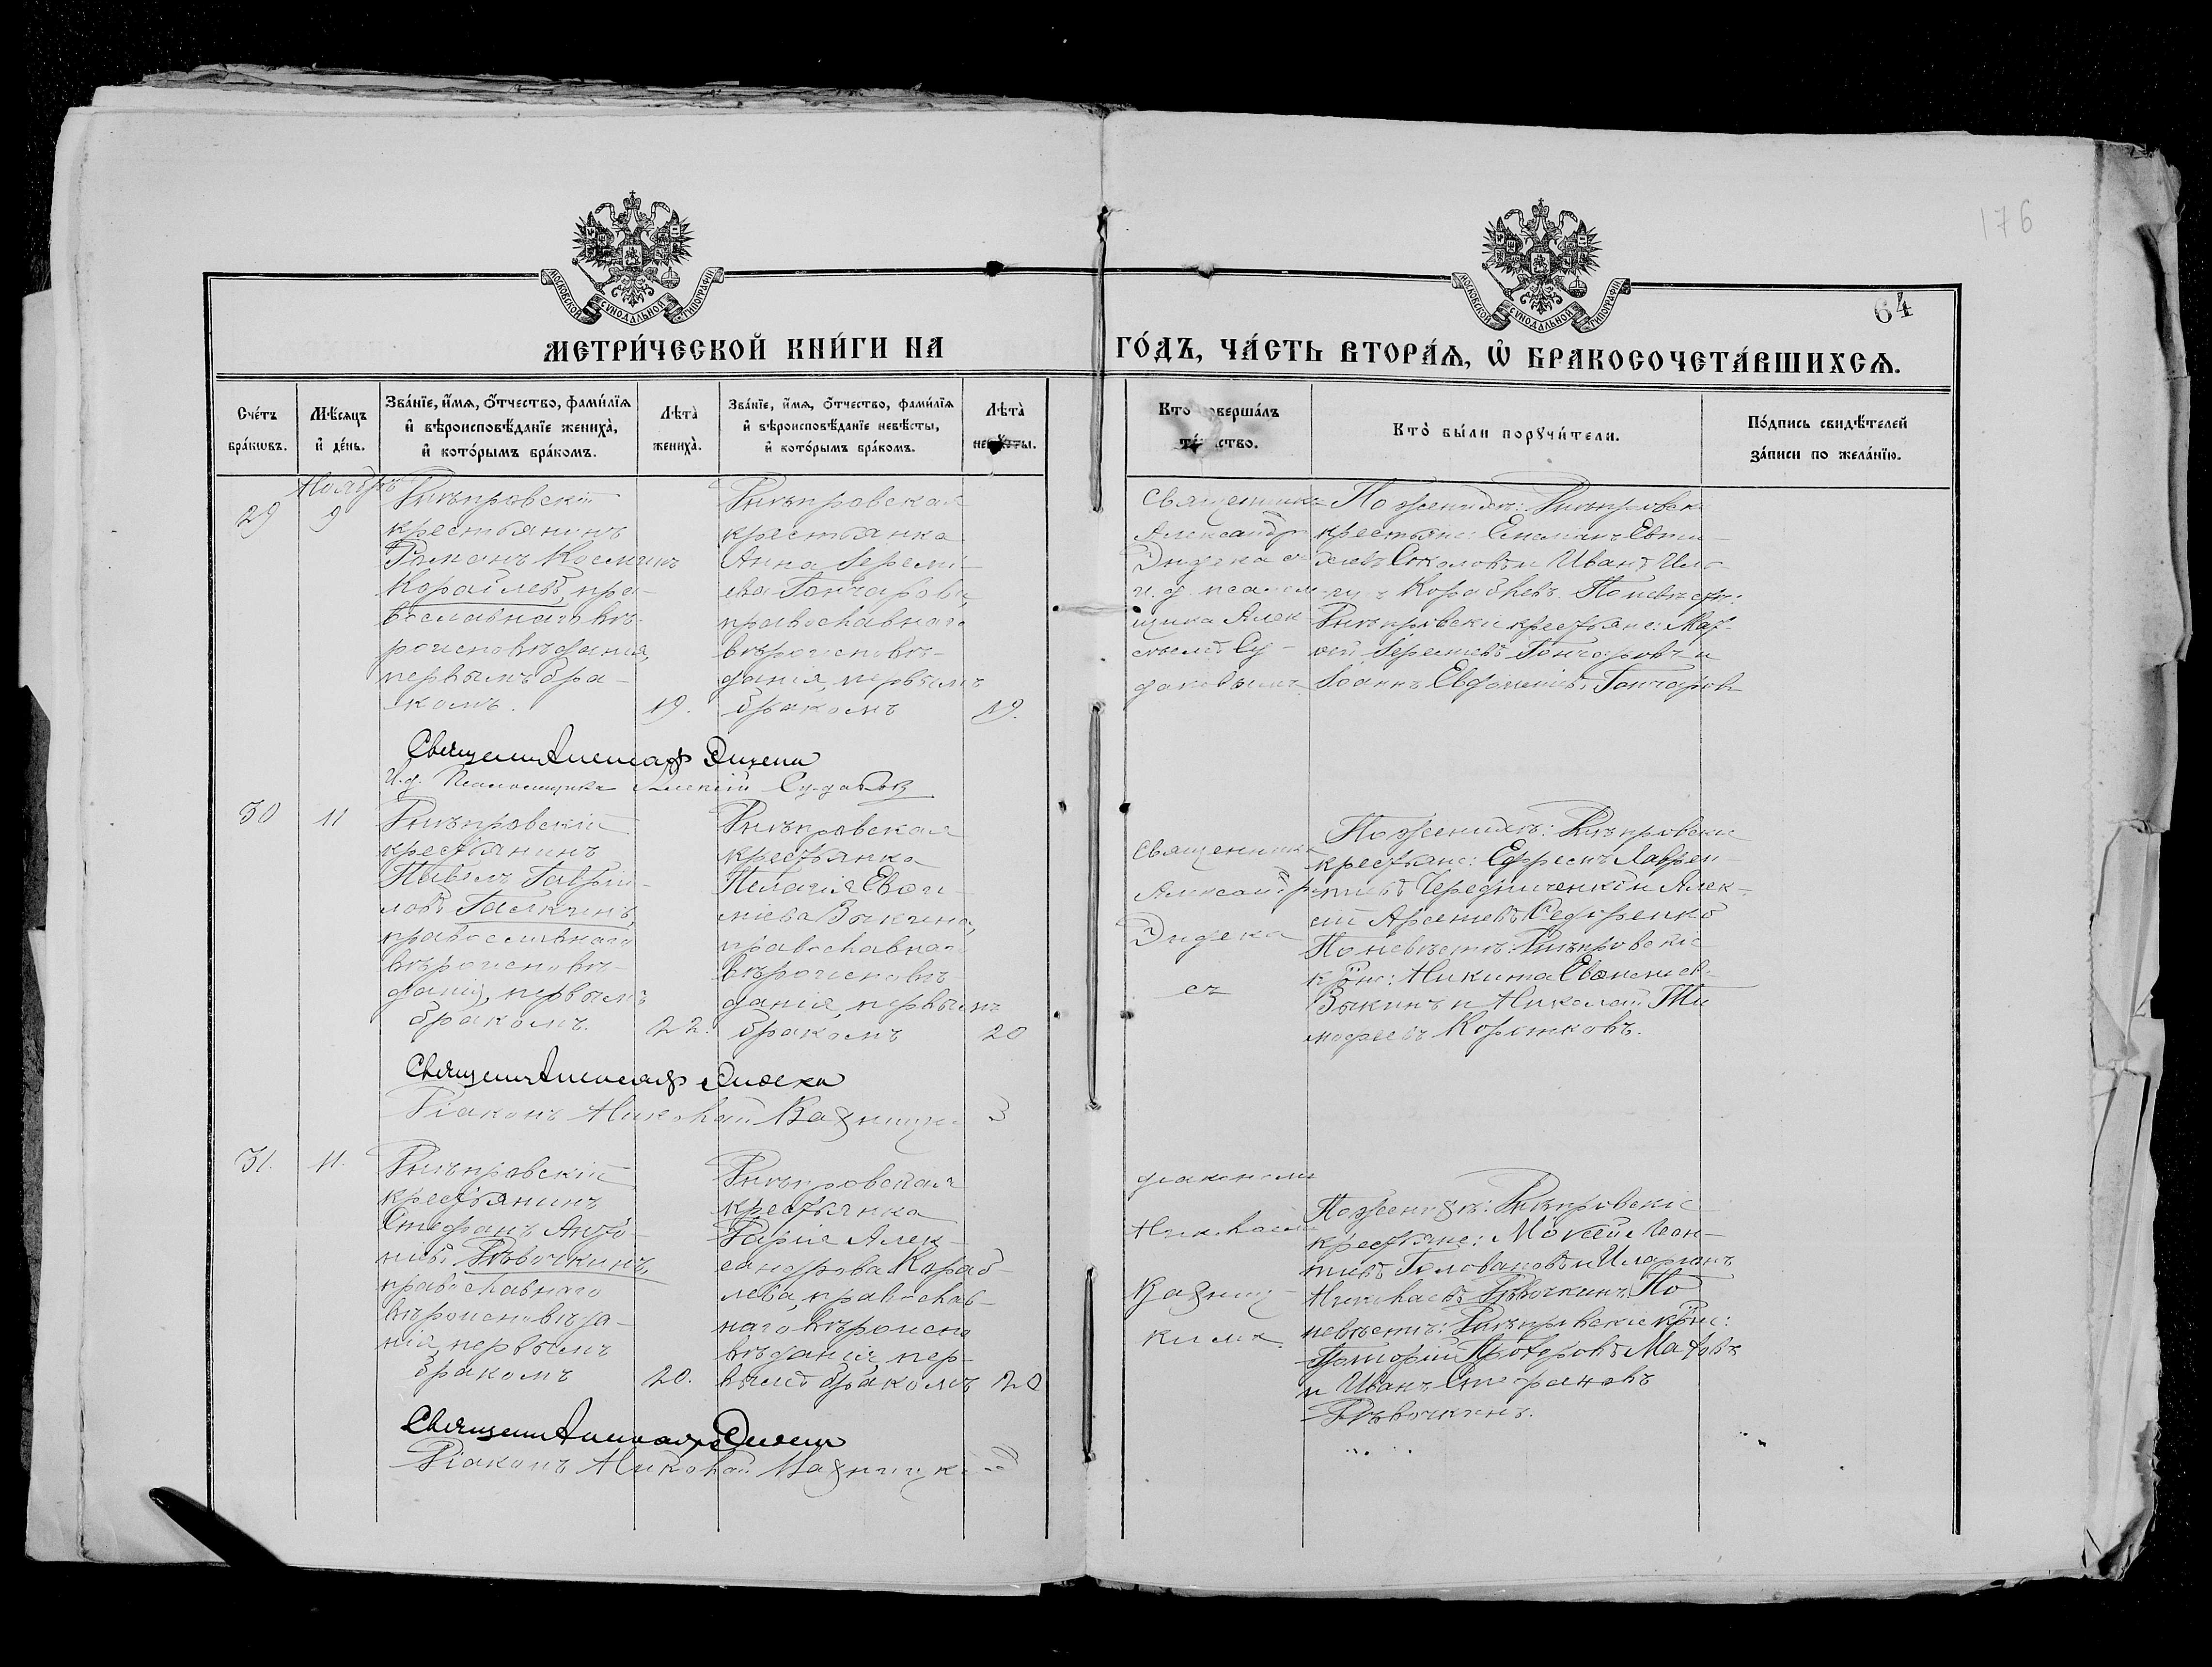 176
64
МОСКОВСКОЙ СѴНОДАЛЬНОЙ ТИПОГРАФІИ
МОСКОВСКОЙ СѴНОДАЛЬНОЙ ТИПОГРАФІИ
МЕТРИ́ЧЕСКОЙ КНИ́ГИ НА
ГО́ДЪ, ЧА́СТЬ ВТОРА́Ѧ, Ѡ҆ БРАКОСОЧЕТА́ВШИХСѦ.
Сче́тъ
бра́кѡвъ.
Мѣ́сѧцъ
и҆ де́нь.
Зва́нїе, и҆́мѧ, ѻ҆́тчество, фами́лїѧ
и҆ вѣроисповѣ́данїе жениха̀,
и҆ кото́рымъ бра́комъ.
Лѣта̀
жениха̀.
Зва́нїе, и҆́мѧ, ѻ҆́тчество, фами́лїѧ
и҆ вѣроисповѣ́данїе невѣ́сты,
и҆ кото́рымъ бра́комъ.
Лѣта̀
невѣ́сты.
Кто̀ соверша́лъ
та́инство.
Кто̀ бы́ли порꙋчи́тели.
По́дпись свидѣ́телей
за́писи по жела́нїю.
Ноябрь
29
9
Днѣпровскій
крестьянинъ
Романъ Косминъ
Кораблевъ, пра-
вославнаго вѣ-
роисповѣданія,
первымъ бра-
комъ.
19.
Днѣпровская
крестьянка
Анна Іеремі-
ева Гончарова,
православнаго
вѣроисповѣ-
данія, первымъ
бракомъ
19.
Священникъ
Александръ
Эндека съ
и.д. псалом-
щика Алек
сѣемъ Су-
даковымъ
По женихѣ: Днѣпровскі
крестьяне:
Соколовъ и Иванъ
Кораблевъ. По невѣстѣ:
Днѣпровскіе крестьяне:
Іереміевъ Гончаровъ и
Іоаннъ Гончаровъ
Священ Александръ Эндека
И.д. Псаломщика Алексій Судаковъ
30
11
Днѣпровскій
крестьянинъ
Павелъ Гаврии-
ловъ Галкинъ,
православнаго
вѣроисповѣ-
данія, первымъ
бракомъ.
22.
Днѣпровская
крестьянка
Пелагія Евѳи-
міева Выкина,
православнаго
вѣроисповѣ-
данія, первымъ
бракомъ
20
Священникъ
Александръ
Эндека
съ
По женихѣ: Днѣпровскіе
крестьяне: Ефремъ Лаврен-
тіевъ Чередниченко и Алек-
сій Арсеніевъ Федоренко
По невѣстѣ: Днѣпровскіе
кр̃не: Никита Евѳиміев.
Выкинъ и Николай Ти
мофѣевъ Коротковъ.
Священ Александръ Эндека
Діаконъ Николай
31.
11.
Днѣпровскій
крестьянинъ
Стефанъ Анто-
ніевъ Дѣвочкинъ,
православнаго
вѣроисповѣда-
нія, первымъ
бракомъ
20.
Днѣпровская
крестьянка
Дарія Алек-
сандрова Кораб-
лева, православ-
наго вѣроиспо
вѣданія, пер-
вымъ бракомъ
20
діакономъ
Николаемъ
По женихѣ: Днѣпровскіе
крестьяне: Мокей Леон-
тіевъ Головаковъ и Иларіонъ
Николаевъ Дѣвочкинъ. По
невѣстѣ: Днѣпровскіе кр̃не:
Григорій Прохоровъ
и Иванъ Стефановъ
Дѣвочкинъ.
Священ Александръ Эндека
Діаконъ Николай